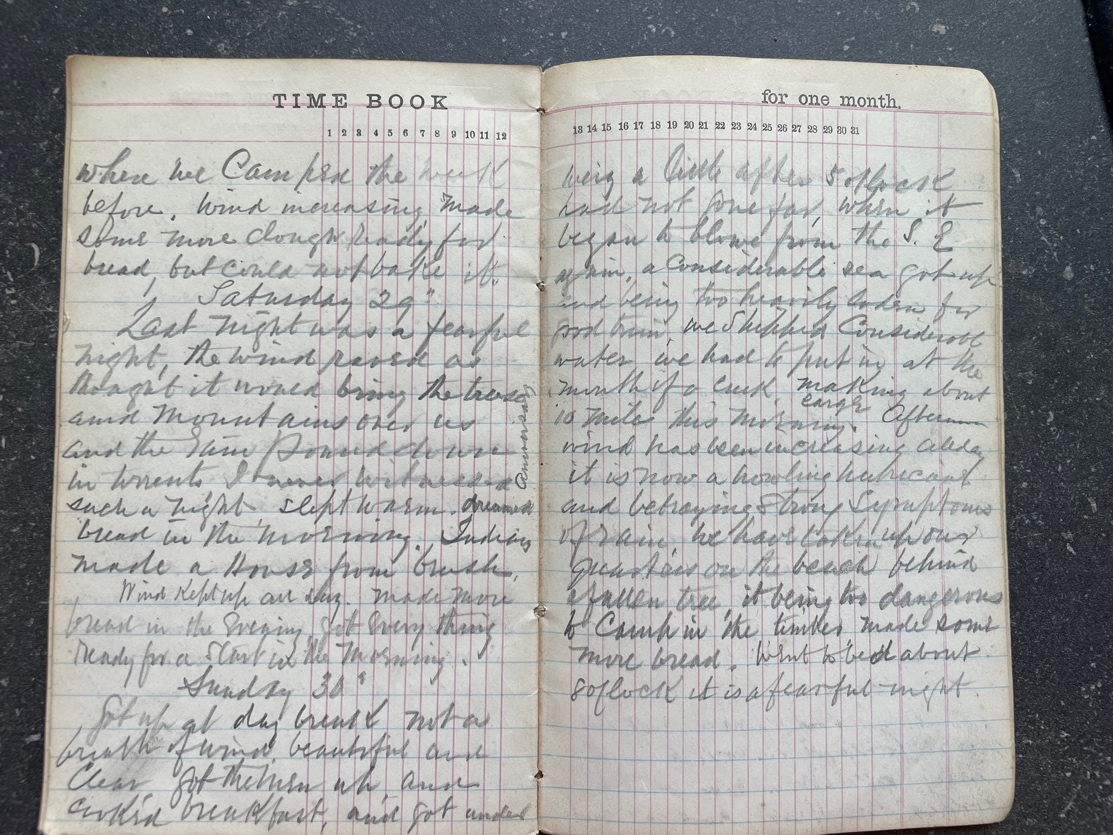 TIME BOOK
1 2 3 4 5 6 7 8 9 10 11 12
where we Camped the week
before. Wind increasing, made
some more dough ready for
bread, but could not bake it.
Saturday 29"
Last night was a fearful
night, the wind raved as
thought it would bring the trees
and Mountains over us
and the rain Poured down
in torrents I never witnessed
such a night. Slept warm.
bread in the morning. Indians
made a House from brush.
Wind Kept up all day made more
bread in the Evening got Every thing
ready for a Start in the Morning.
Sunday 30"
Got up at day break not a
breath of wind beautiful and
Clear got them up and
cook'd breakfast, and got under
for one month.
13 14 15 16 17 18 19 20 21 22 23 24 25 26 27 28 29 30 31
weig a little after 5 oflock
had not gone far, when it
began to blowe from the S. E
again, a Considerable sea got up
and being too heavily loden for
good trim we Shipped Considerable
water, we had to put in at the
mouth of a making about
large
10 miles this Morning. Afternoon
wind has been increasing all day
it is now a howling huricane
and betraying Strong Symptoms
of rain, we have taken up our
quarters on the beach behind
a fallen tree it being too dangerous
to Camp in the timber made some
more bread. Went to bed about
8 oflock it is a fearful night.